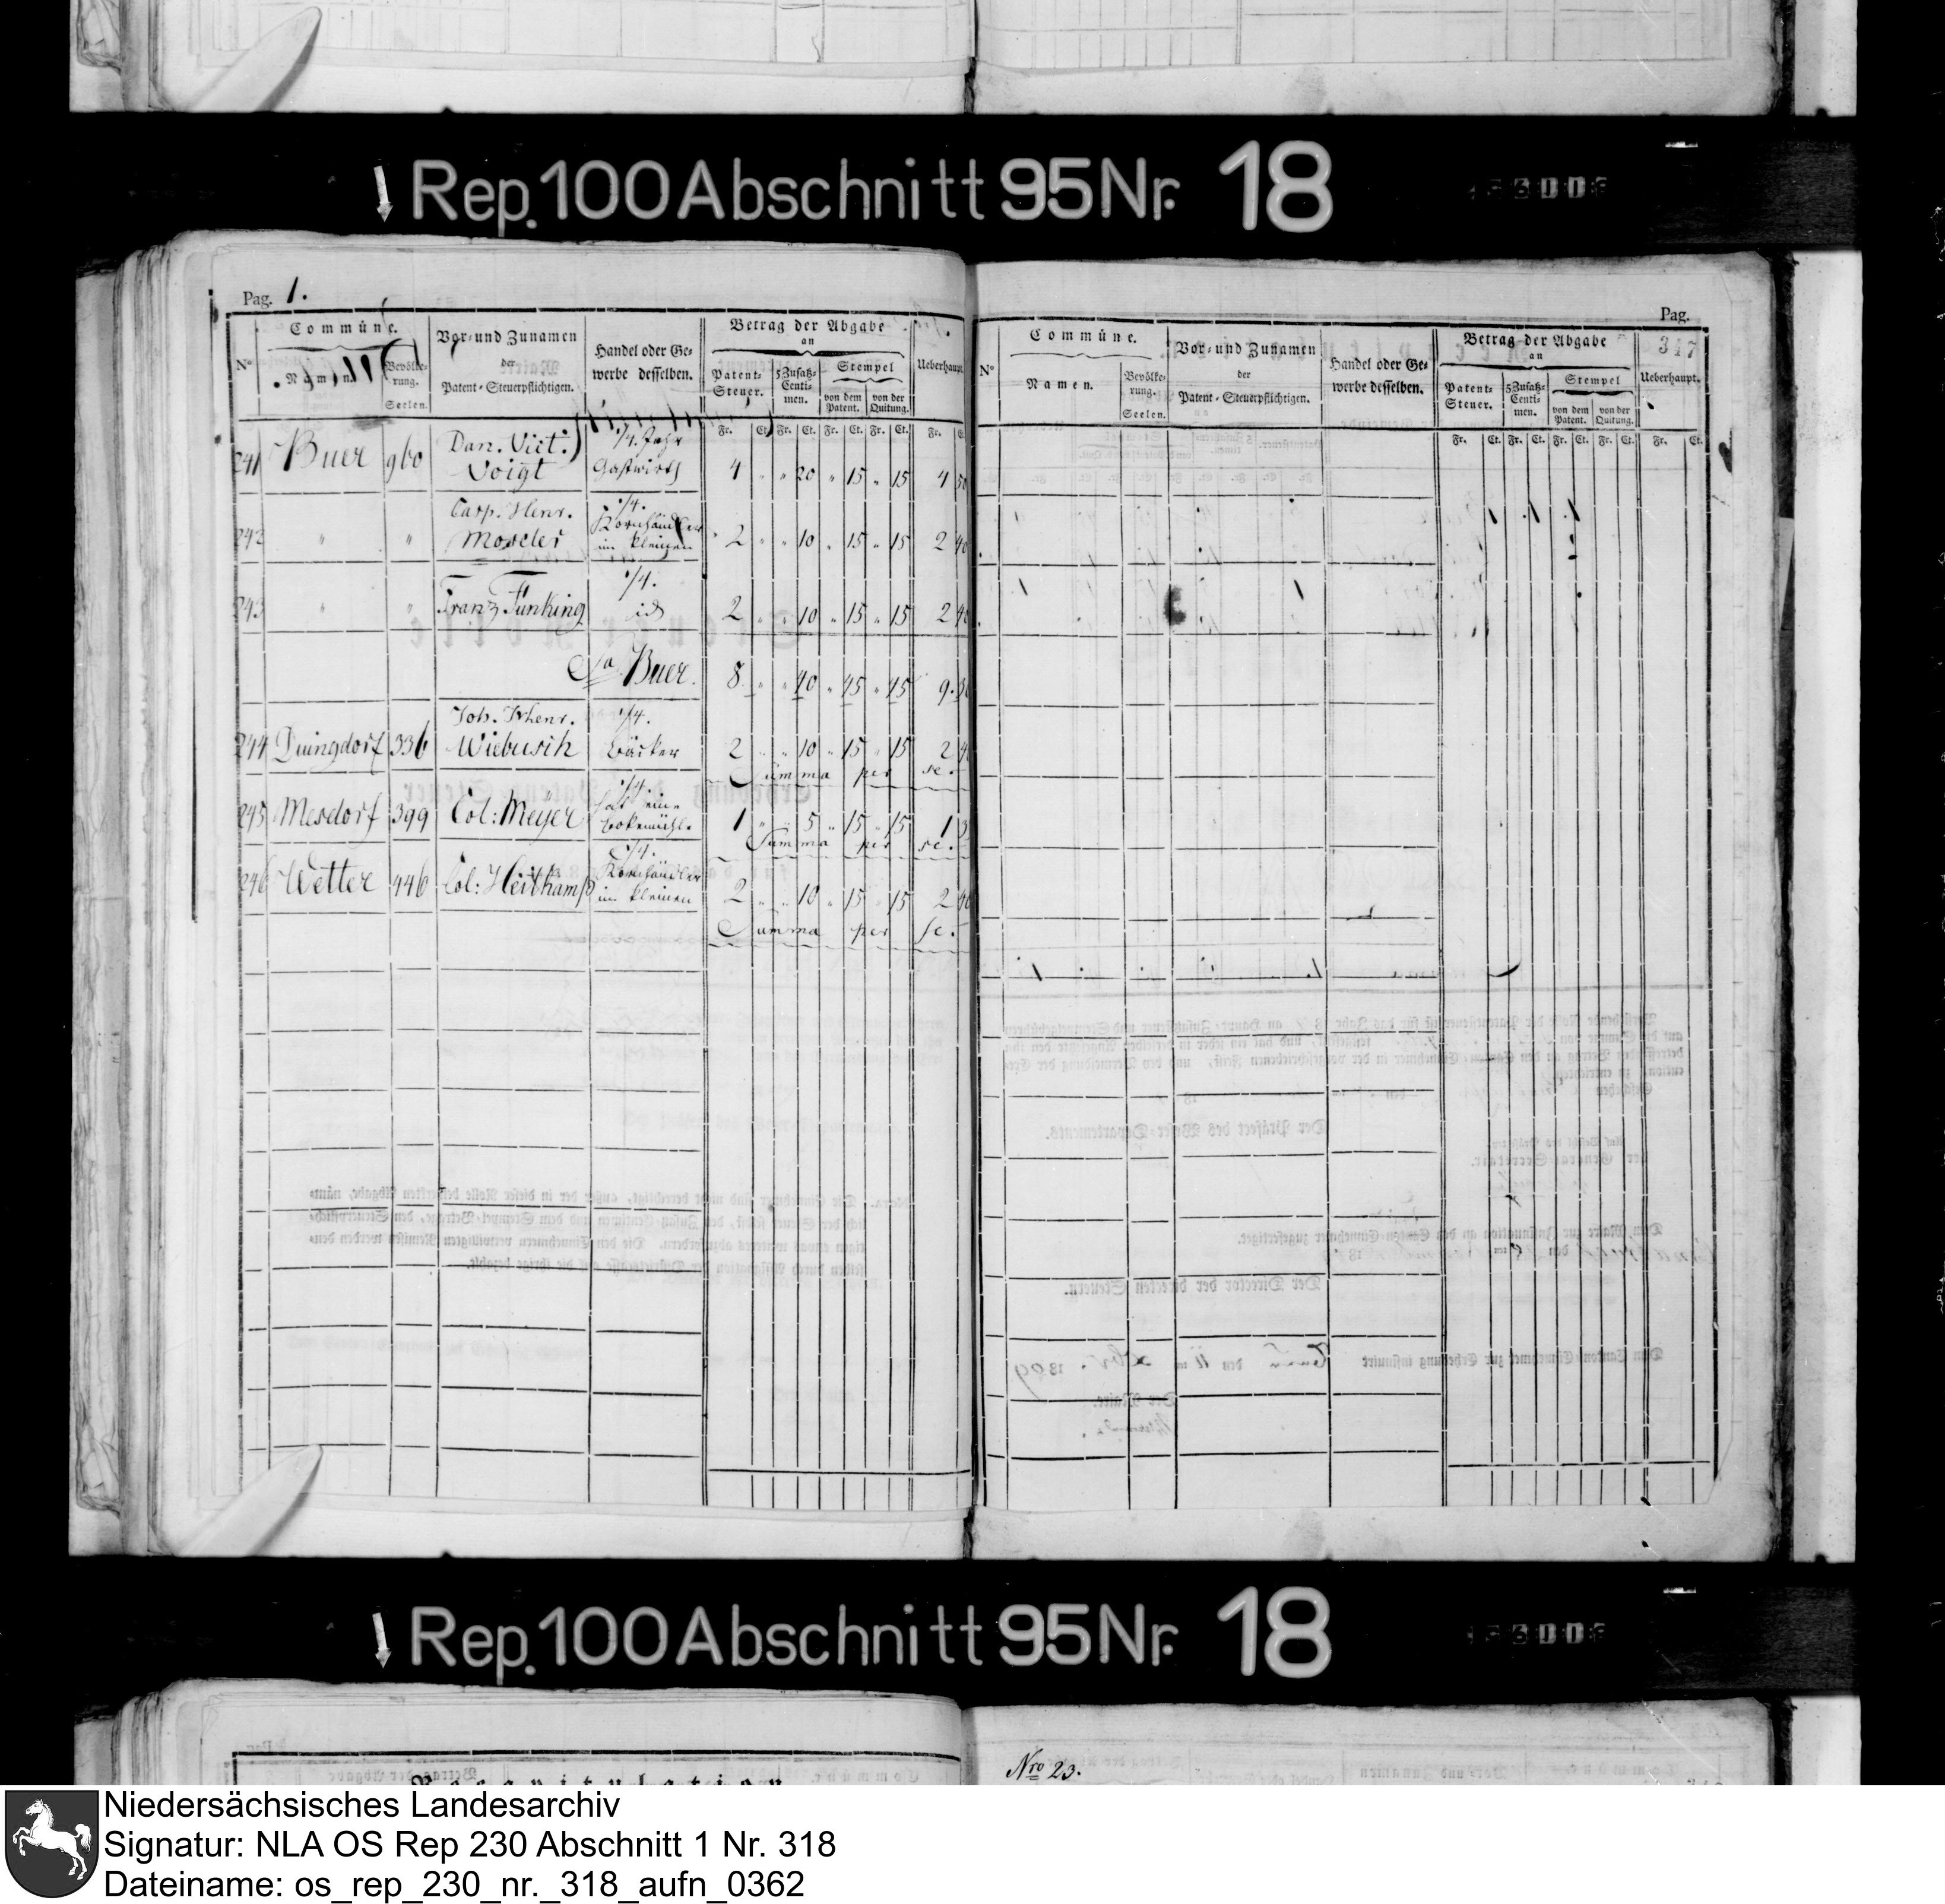 Rep. 100 Abschnitt 95 Nr. 18
Pag. 1.
N° Commüne. Vor- und Zunamen der Patent-Steuerpflichtigen. Handel oder Gewerbe desselben. Betrag der Abgabe an Ueberhaupt.
Namen. Bevölkerung. Seelen. Patent-Steuer. 5 Zusatz-Centimen. Stempel von dem Patent. von der Quitung.
Fr. Ct. Fr. Ct. Fr. Ct. Fr. Ct. Fr.
241 Buer 960 Dan. Vict. Voigt 1/4. Jahr Gastwirth 4 " " 20 " 15 " 15 4 50
242 " " Casp. Henr. Moseler 1/4. Kornhändler im kleinen 2 " " 10 " 15 " 15 2 40
243 " " Franz Fünking 1/4. id 2 " " 10 " 15 " 15 2 40
Sa Buer. 8 " " 40 " 45 " 45 9. 30
244 Duingdorf 336 Joh. Henr. Wiebusch 1/4. Bäcker 2 " " 10 " 15 " 15 2 40
Summa per se.
245 Mesdorf 399 Col: Meyer 1/4. hat eine Bokemühle 1 " " 5 " 15 " 15 1
Summa per se.
246 Wetter 446 Col: Heitkamp 1/4. Kornhändler im kleinen 2 " " 10 " 15 " 15 2 40
Summa per se.
Pag.
347
N° Commüne. Vor- und Zunamen der Patent-Steuerpflichtigen. Handel oder Gewerbe desselben. Betrag der Abgabe an Ueberhaupt.
Namen. Bevölkerung. Seelen. Patent-Steuer. 5 Zusatz-Centimen. Stempel von dem Patent. von der Quitung.
Fr. Ct. Fr. Ct. Fr. Ct. Fr. Ct. Fr. Ct.
Rep. 100 Abschnitt 95 Nr. 18
Nro 23.
Niedersächsisches Landesarchiv
Signatur: NLA OS Rep 230 Abschnitt 1 Nr. 318
Dateiname: os_rep_230_nr._318_aufn_0362